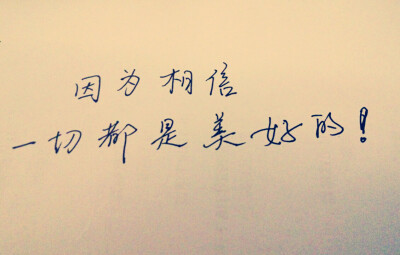 因为相信
一切都是美好的！